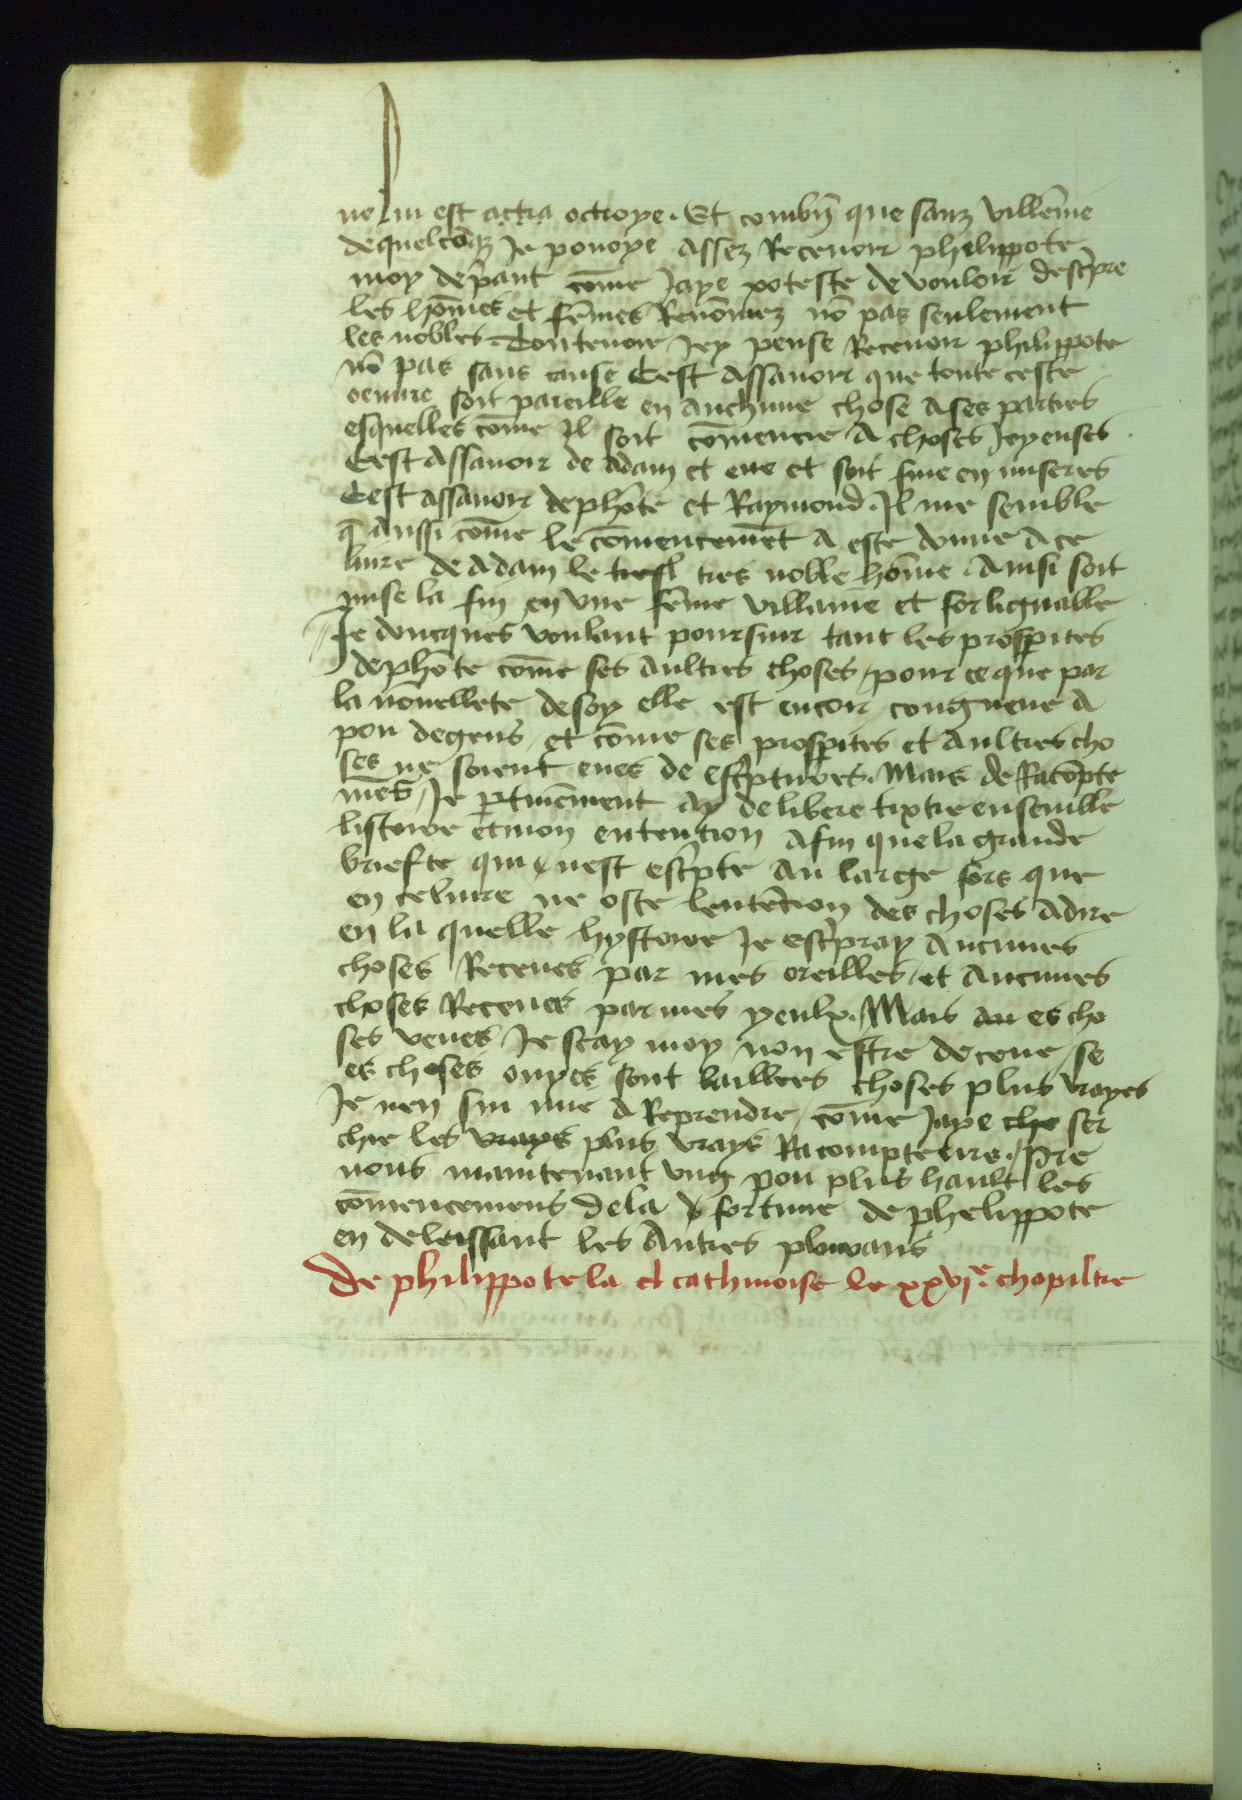 ne lui est actra octroye. Et combn̄ que sanz villēnie
de quelcōqz Je pouoye assez Receuoir philippote
moy dep̄ant cōme Jaye poteste de vouloir desc̄pre
les hōmes et fēmes Renōmez nō pas seulement
les nobles. Touteuoie Jey pense Receuoir philippote
nō pas sans cause Cest assauoir que toute ceste
oeuure soit pareille en auchune chose a ses parties
esquelles cōme Il soit cōmencie a choses Joyeuses
Cest assauoir de adam et eue et soit fine en miseres
Cest assauoir de phōte et Raymond. Il me semble
q̄ aussi cōme le cōmencemēt a este donne a ce
liure de adam le tresl tres noble hōme. Ainsi soit
mise la fin en vne fēme villaine et forlignable
Je doncques voulant poursuir tant les prosp̄ites
de phōte cōme ses aultres choses / pour ce que par
la nouellete de soy elle est encor congneue a
pou de gens / et cōme ses prosp̄ites et aultres cho
ses ne soient eues de esc̄ptures. Mais de Racōpte
mēs / Je p̄tinēment ay delibere tixtre ensemble
listoire et mon entention afin que la grande
briefte qui nest esc̄pte au large fors que
en ce liure ne oste lentētion des choses a dire
en la quelle hystoire Je esc̄pray aucunes
choses Receues par mes oreilles / et aucunes
choses Receues par mes yeulx. Mais au es cho
ses veues Je scay moy non estre deceue / se
es choses ouyes sont baillees choses plus vrayes
Je nen sui mie a Reprendre / cōme Jaye che ser
chie les vrays plus vrays Racompteurs. / Pre
nons maintenant vng pou plus hault les
cōmencemens de la fortune de phelippote
en delaissant les autres pluivans
De philippote la cl cathinoise le xxvjᵉ. chapiltre